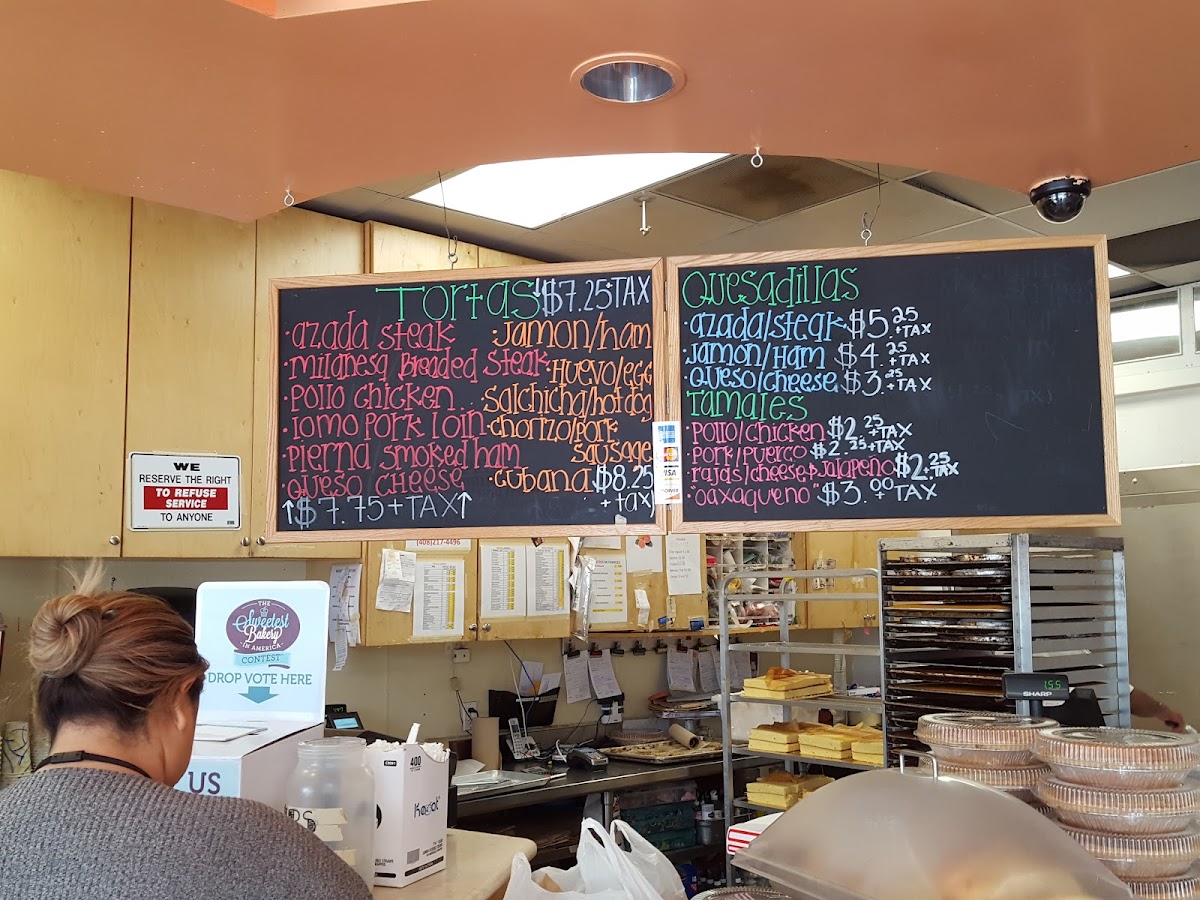 Tortas ↓$7.25+TAX
·azada steak
·milanesa Breaded steak
·pollo chicken
·lomo pork loin
·pierna smoked ham
·queso cheese
↑$7.75+TAX↑
·Jamon/ham
·Huevo/egg
·Salchicha/hot dog
·chorizo/pork
sausage
·cubana $8.25
+tax
Quesadillas
·azada/steak $5.25+TAX
·Jamon/Ham $4.25+TAX
·queso/cheese $3.25+TAX
Tamales
·pollo/chicken $2.25+TAX
·pork/puerco $2.25+TAX
·rajas/cheese+jalapeño $2.25+TAX
·"oaxaqueno" $3.00+TAX
VISA
WE
RESERVE THE RIGHT
TO REFUSE
SERVICE
TO ANYONE
(408)217-4496
THE
Sweetest
Bakery
IN AMERICA
CONTEST
DROP VOTE HERE
US
400
SHARP
155